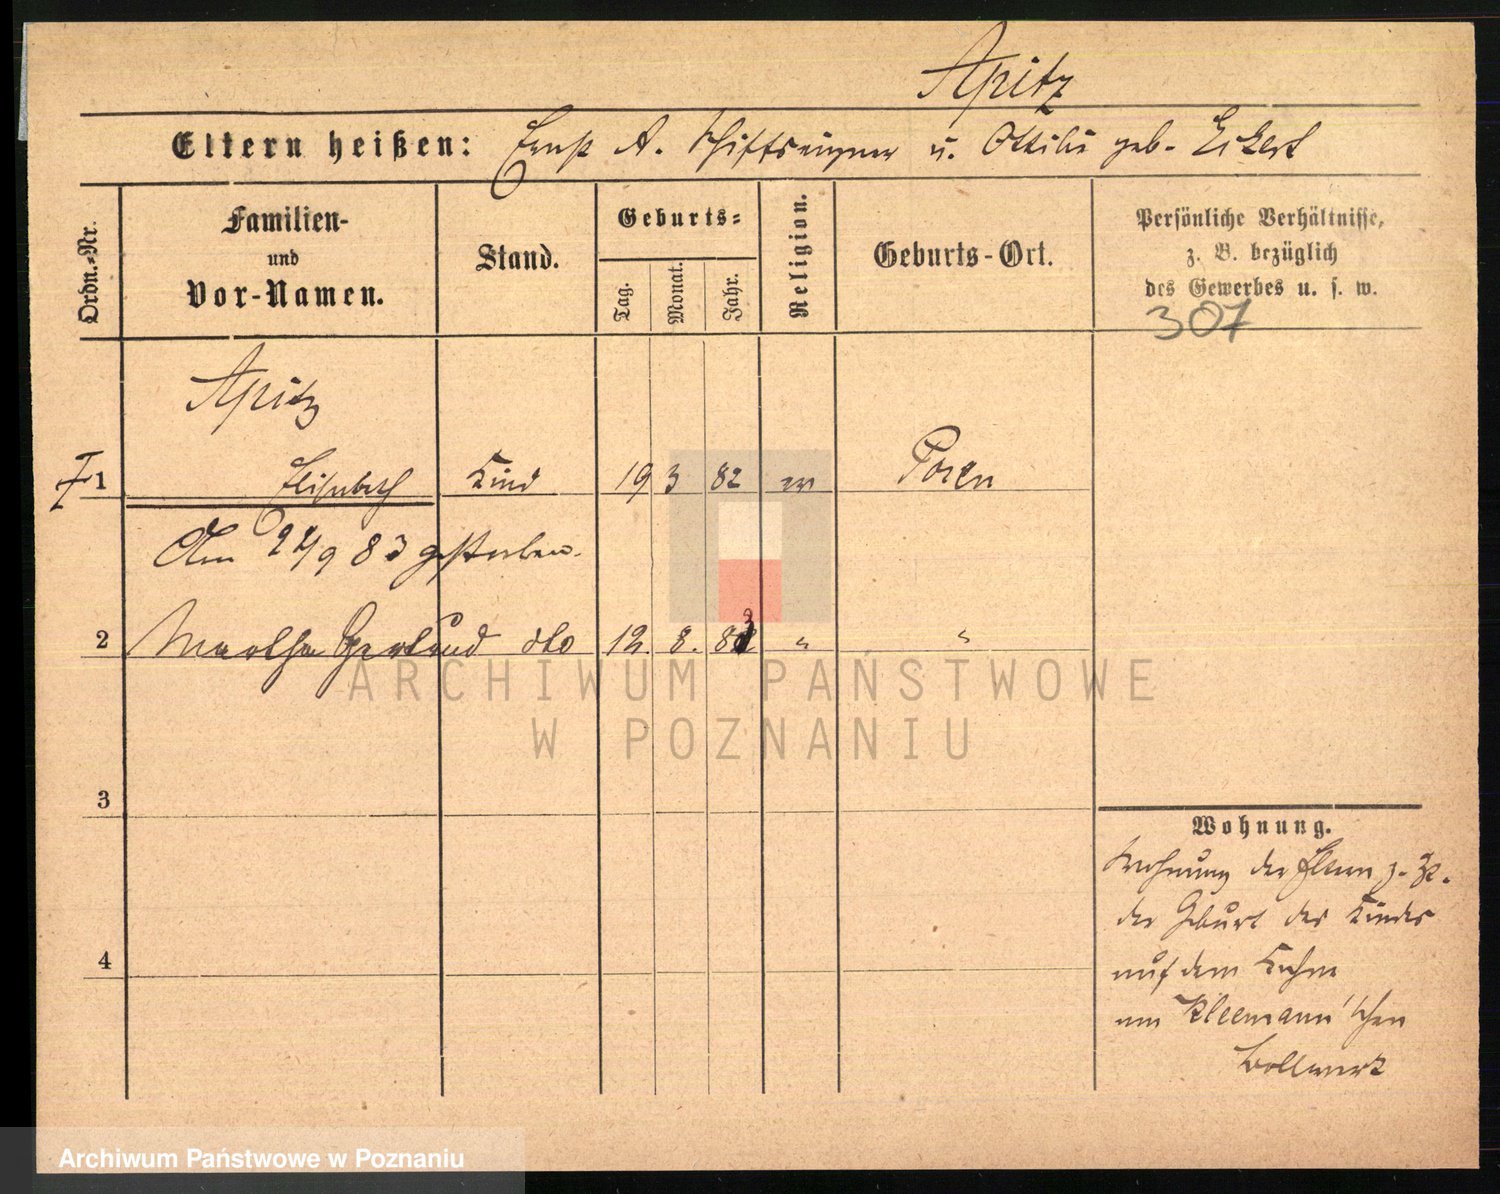 Apitz
Eltern heißen: Ernst A. Schiffseigner u. Ottilie geb. Eckert
Ordn.-Nr.
Familien-
und
Vor-Namen.
Stand.
Geburts-
Tag.
Monat.
Jahr.
Religion.
Geburts-Ort.
Persönliche Verhältnisse,
z. B. bezüglich
des Gewerbes u. s. w.
307
Apitz
1 Elisabeth Kind 19 3 82 ev Posen
Am 24/9 83 gestorben.
2 Martha Gertrud dto 12. 8. 83 " "
3
4
Wohnung.
Wohnung der Eltern z. Zt.
der Geburt des Kindes
auf dem Kahne
am Kleemann'schen
Bollwerk
ARCHIWUM PAŃSTWOWE
W POZNANIU
Archiwum Państwowe w Poznaniu